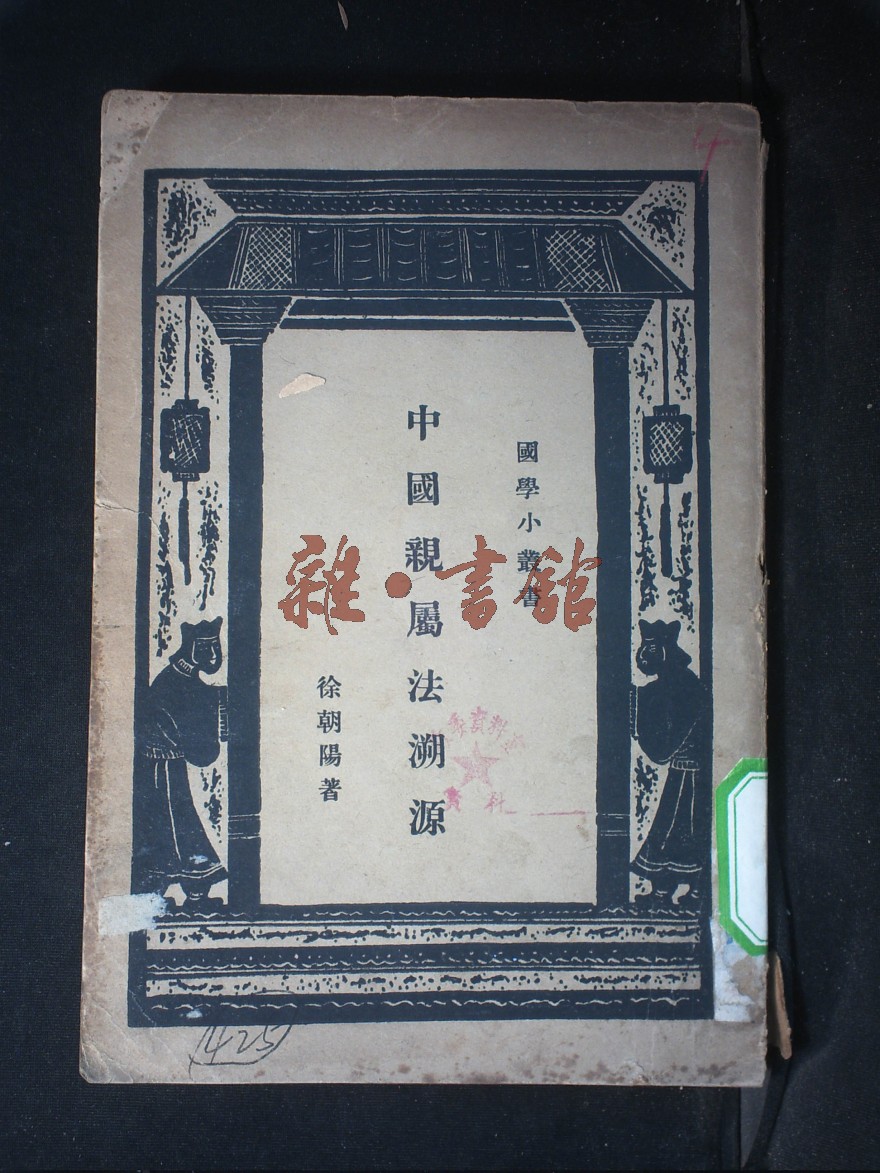 國學小叢書
中國親屬法溯源
徐朝陽著
雜·書館
資料
社
1425